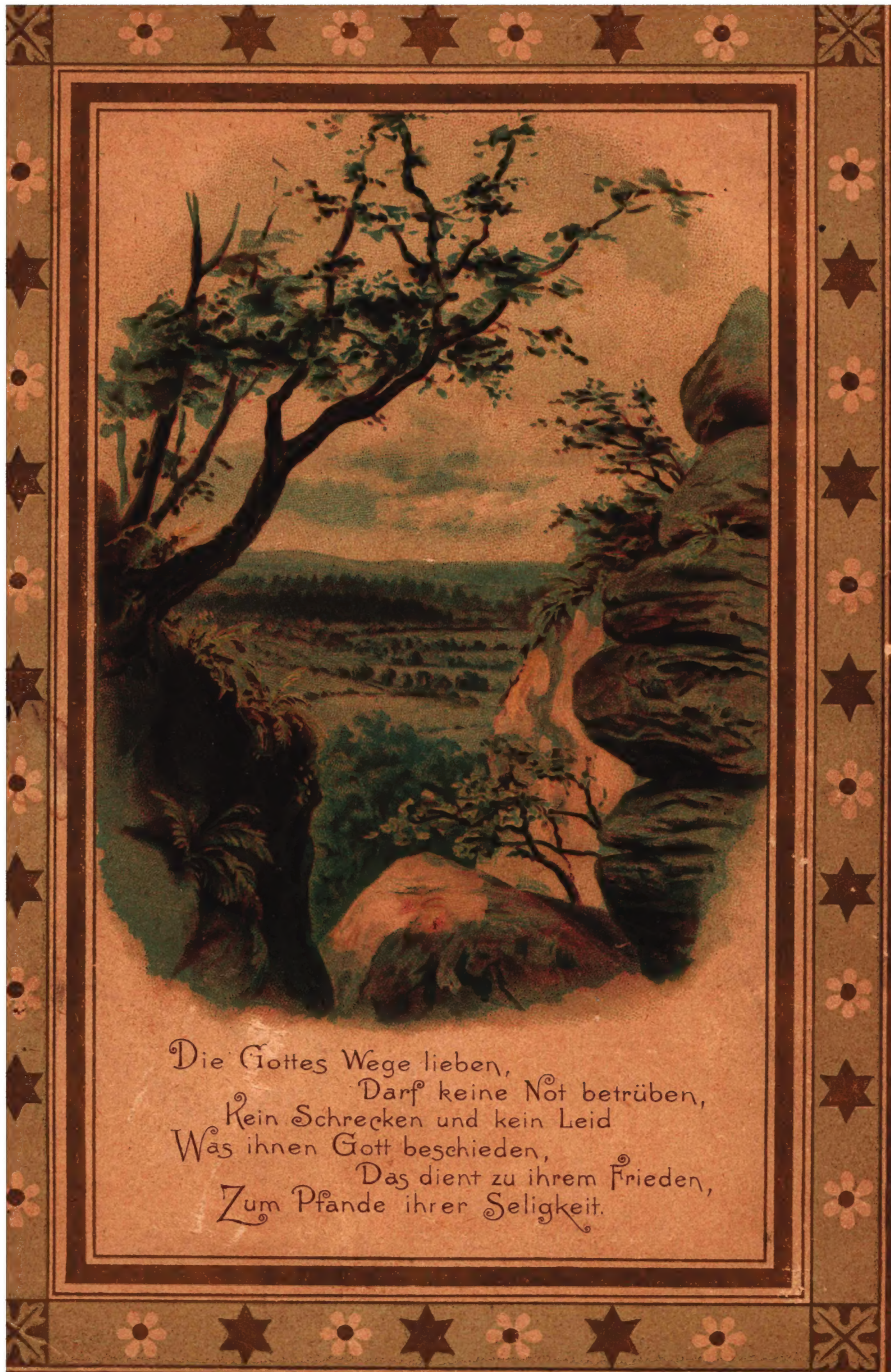 Die Gottes Wege lieben,
Darf keine Not betrüben,
Kein Schrecken und kein Leid
Was ihnen Gott beschieden,
Das dient zu ihrem Frieden,
Zum Pfande ihrer Seligkeit.